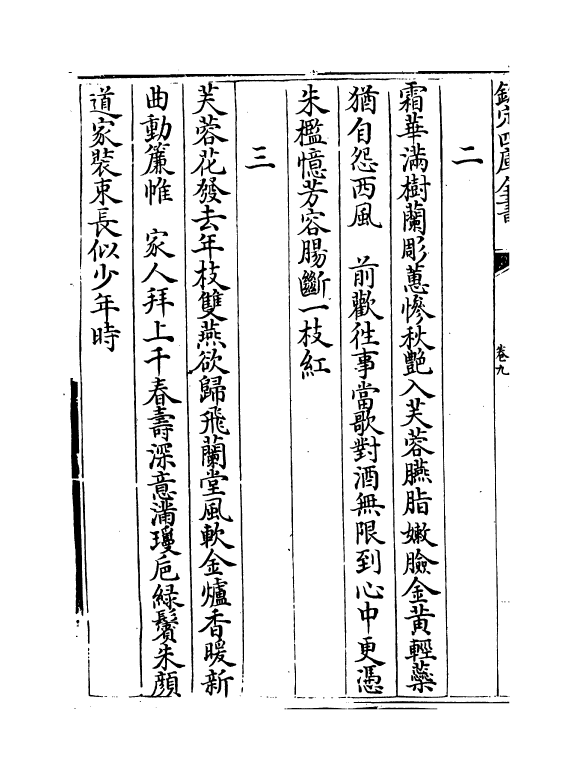 欽定四庫全書
卷九
二
霜華滿樹蘭彫蕙慘秋艷入芙蓉臙脂嫩臉金黃輕蘂
猶自怨西風　前歡往事當歌對酒無限到心中更憑
朱檻憶芳容腸斷一枝紅
三
芙蓉花發去年枝雙燕欲歸飛蘭堂風軟金爐香暖新
曲動簾帷　家人拜上千春壽深意滿瓊巵緑鬢朱顔
道家裝束長似少年時